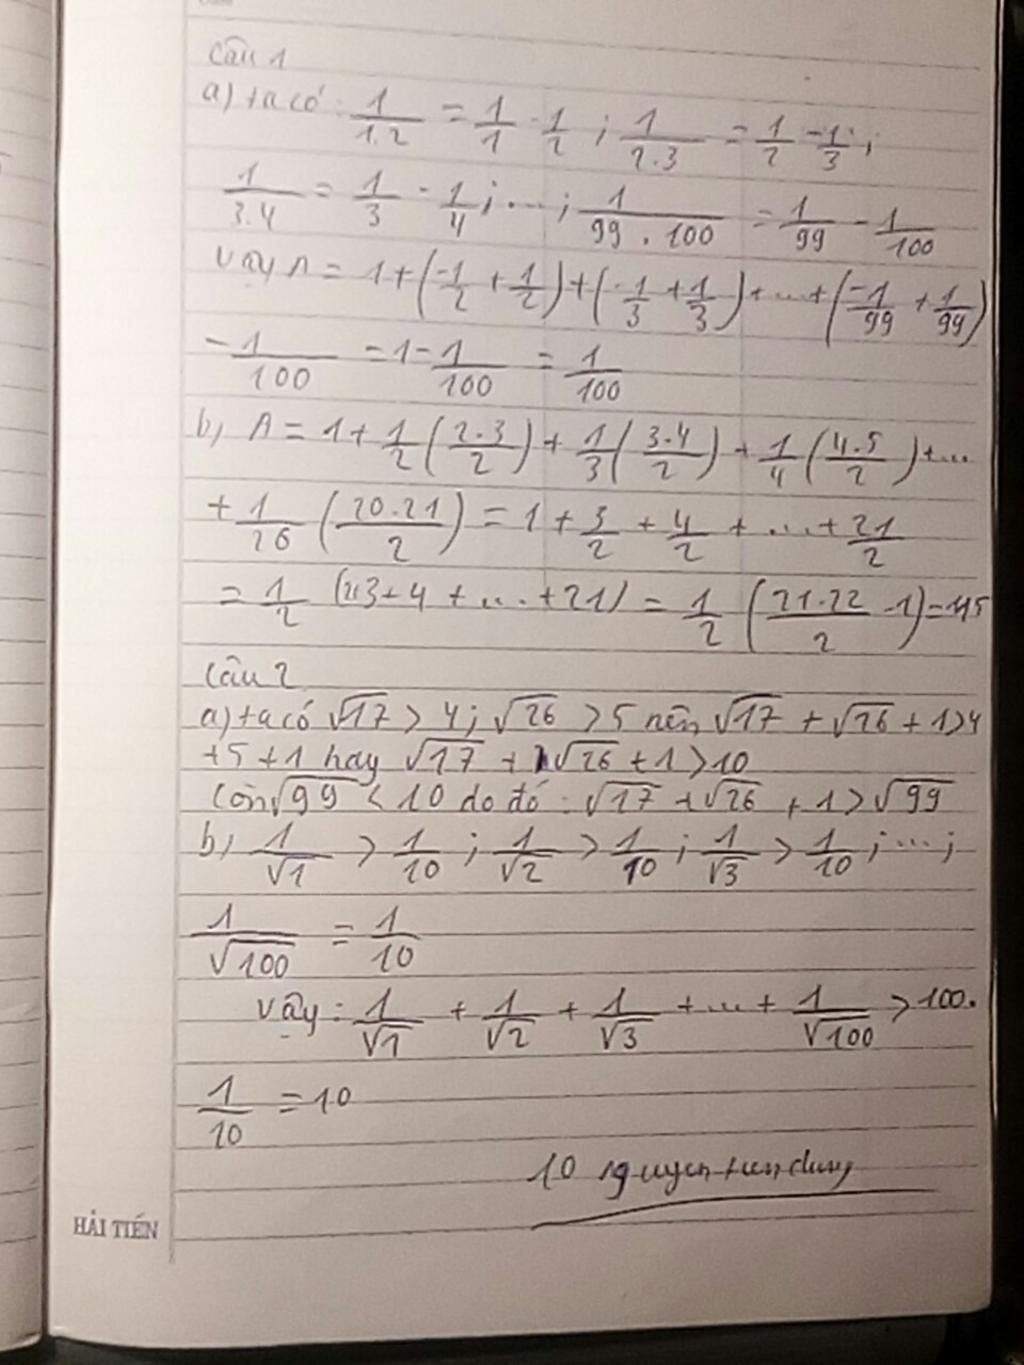 Câu 1
a) ta có: 1/1.2 = 1/1 - 1/2 ; 1/2.3 = 1/2 - 1/3 ;
1/3.4 = 1/3 - 1/4 ; ... ; 1/99.100 = 1/99 - 1/100
vậy A = 1 + (-1/2 + 1/2) + (-1/3 + 1/3) + ... + (-1/99 + 1/99)
- 1/100 = 1 - 1/100 = 1/100
b, A = 1 + 1/2 (2.3/2) + 1/3 (3.4/2) + 1/4 (4.5/2) + ...
+ 1/20 (20.21/2) = 1 + 3/2 + 4/2 + ... + 21/2
= 1/2 (2+3+4 + ... + 21) = 1/2 (21.22/2 - 1) = 115
Câu 2
a) ta có √17 > 4 ; √26 > 5 nên √17 + √26 + 1 > 4
+ 5 + 1 hay √17 + √26 + 1 > 10
Còn √99 < 10 do đó : √17 + √26 + 1 > √99
b, 1/√1 > 1/10 ; 1/√2 > 1/10 ; 1/√3 > 1/10 ; ... ;
1/√100 = 1/10
Vậy : 1/√1 + 1/√2 + 1/√3 + ... + 1/√100 > 100.
1/10 = 10
10 nguyen tien dung
HẢI TIẾN